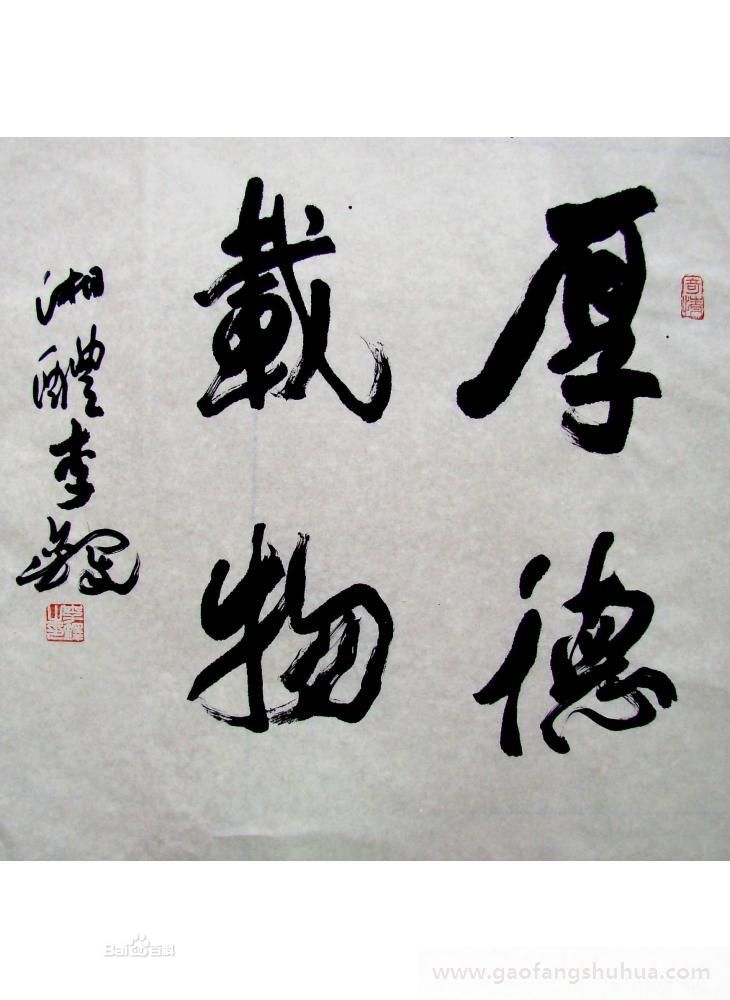 厚德
載物
湘醴李鐸
Bai百科
www.gaofangshuhua.com